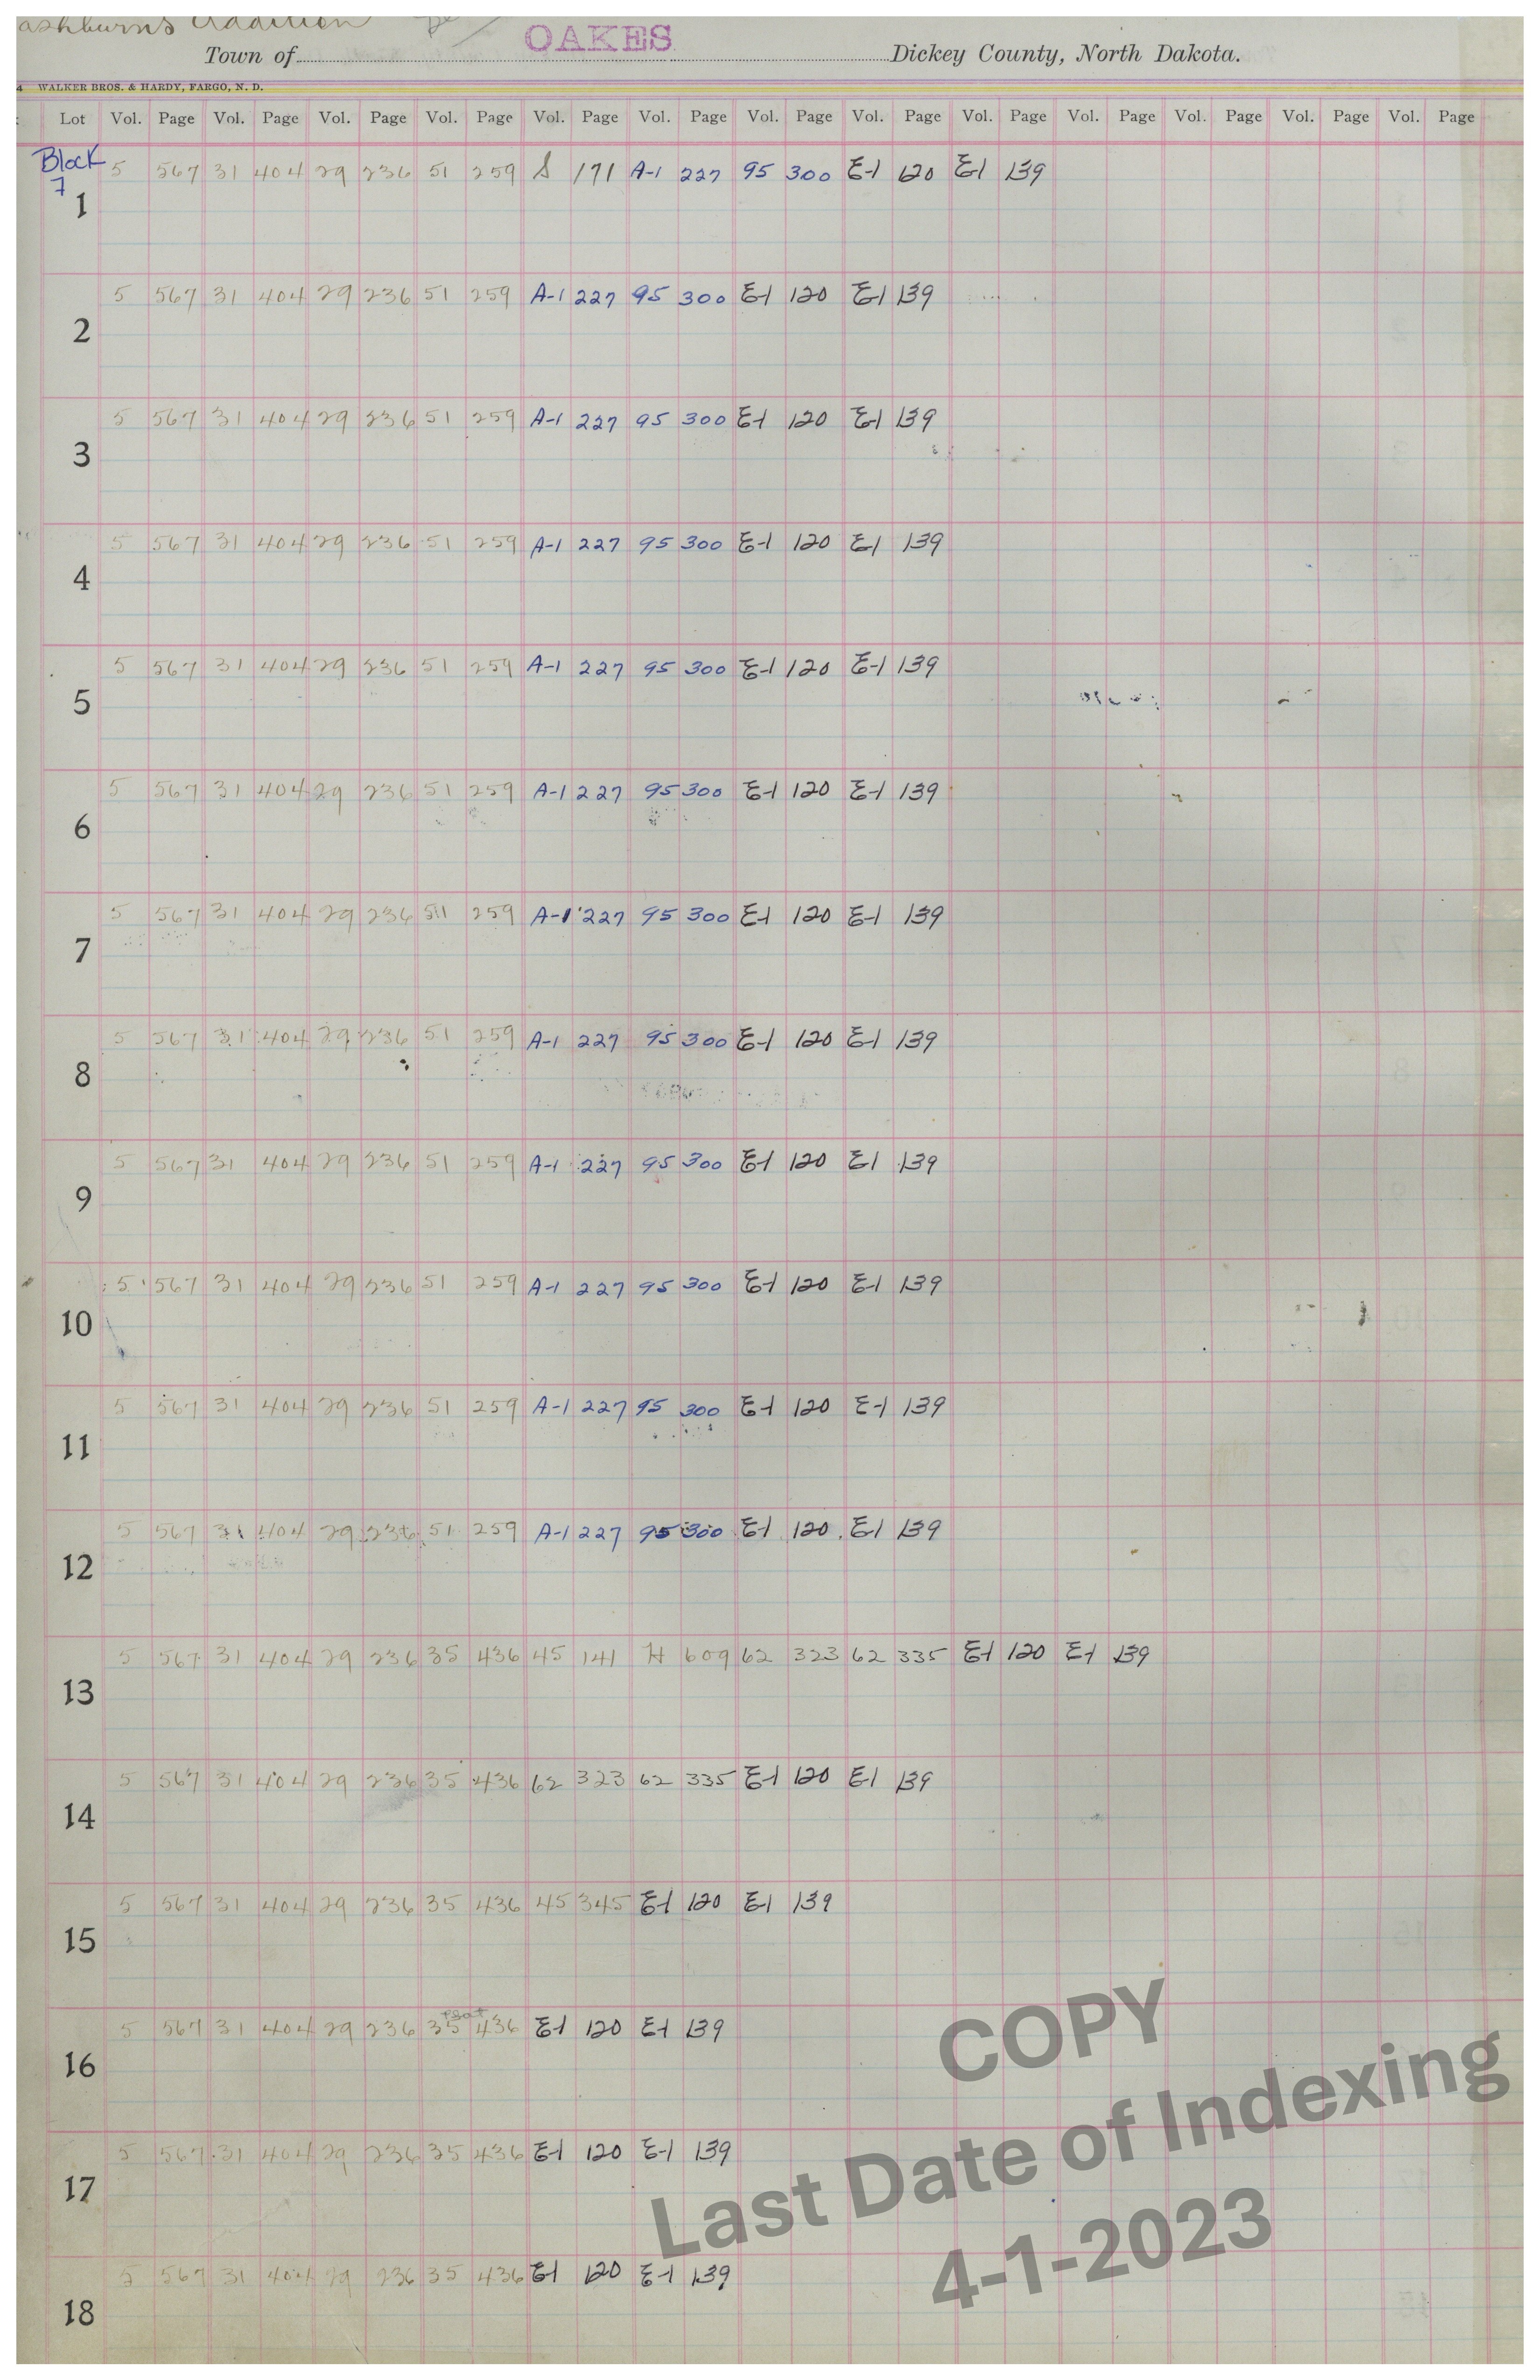 ashburns Addition
OAKES
Town of Dickey County, North Dakota.
4 WALKER BROS. & HARDY, FARGO, N. D.
Lot Vol. Page Vol. Page Vol. Page Vol. Page Vol. Page Vol. Page Vol. Page Vol. Page Vol. Page Vol. Page Vol. Page Vol. Page Vol. Page
Block 7
1 5 567 31 404 29 236 51 259 S 171 A-1 227 95 300 E-1 120 E-1 139
2 5 567 31 404 29 236 51 259 A-1 227 95 300 E-1 120 E-1 139
3 5 567 31 404 29 236 51 259 A-1 227 95 300 E-1 120 E-1 139
4 5 567 31 404 29 236 51 259 A-1 227 95 300 E-1 120 E-1 139
5 5 567 31 404 29 236 51 259 A-1 227 95 300 E-1 120 E-1 139
6 5 567 31 404 29 236 51 259 A-1 227 95 300 E-1 120 E-1 139
7 5 567 31 404 29 236 51 259 A-1 227 95 300 E-1 120 E-1 139
8 5 567 31 404 29 236 51 259 A-1 227 95 300 E-1 120 E-1 139
9 5 567 31 404 29 236 51 259 A-1 227 95 300 E-1 120 E-1 139
10 5 567 31 404 29 236 51 259 A-1 227 95 300 E-1 120 E-1 139
11 5 567 31 404 29 236 51 259 A-1 227 95 300 E-1 120 E-1 139
12 5 567 31 404 29 236 51 259 A-1 227 95 300 E-1 120 E-1 139
13 5 567 31 404 29 236 35 436 45 141 H 609 62 323 62 335 E-1 120 E-1 139
14 5 567 31 404 29 236 35 436 62 323 62 335 E-1 120 E-1 139
15 5 567 31 404 29 236 35 436 45 345 E-1 120 E-1 139
16 5 567 31 404 29 236 35 436 E-1 120 E-1 139
17 5 567 31 404 29 236 35 436 E-1 120 E-1 139
18 5 567 31 404 29 236 35 436 E-1 120 E-1 139
COPY
Last Date of Indexing
4-1-2023